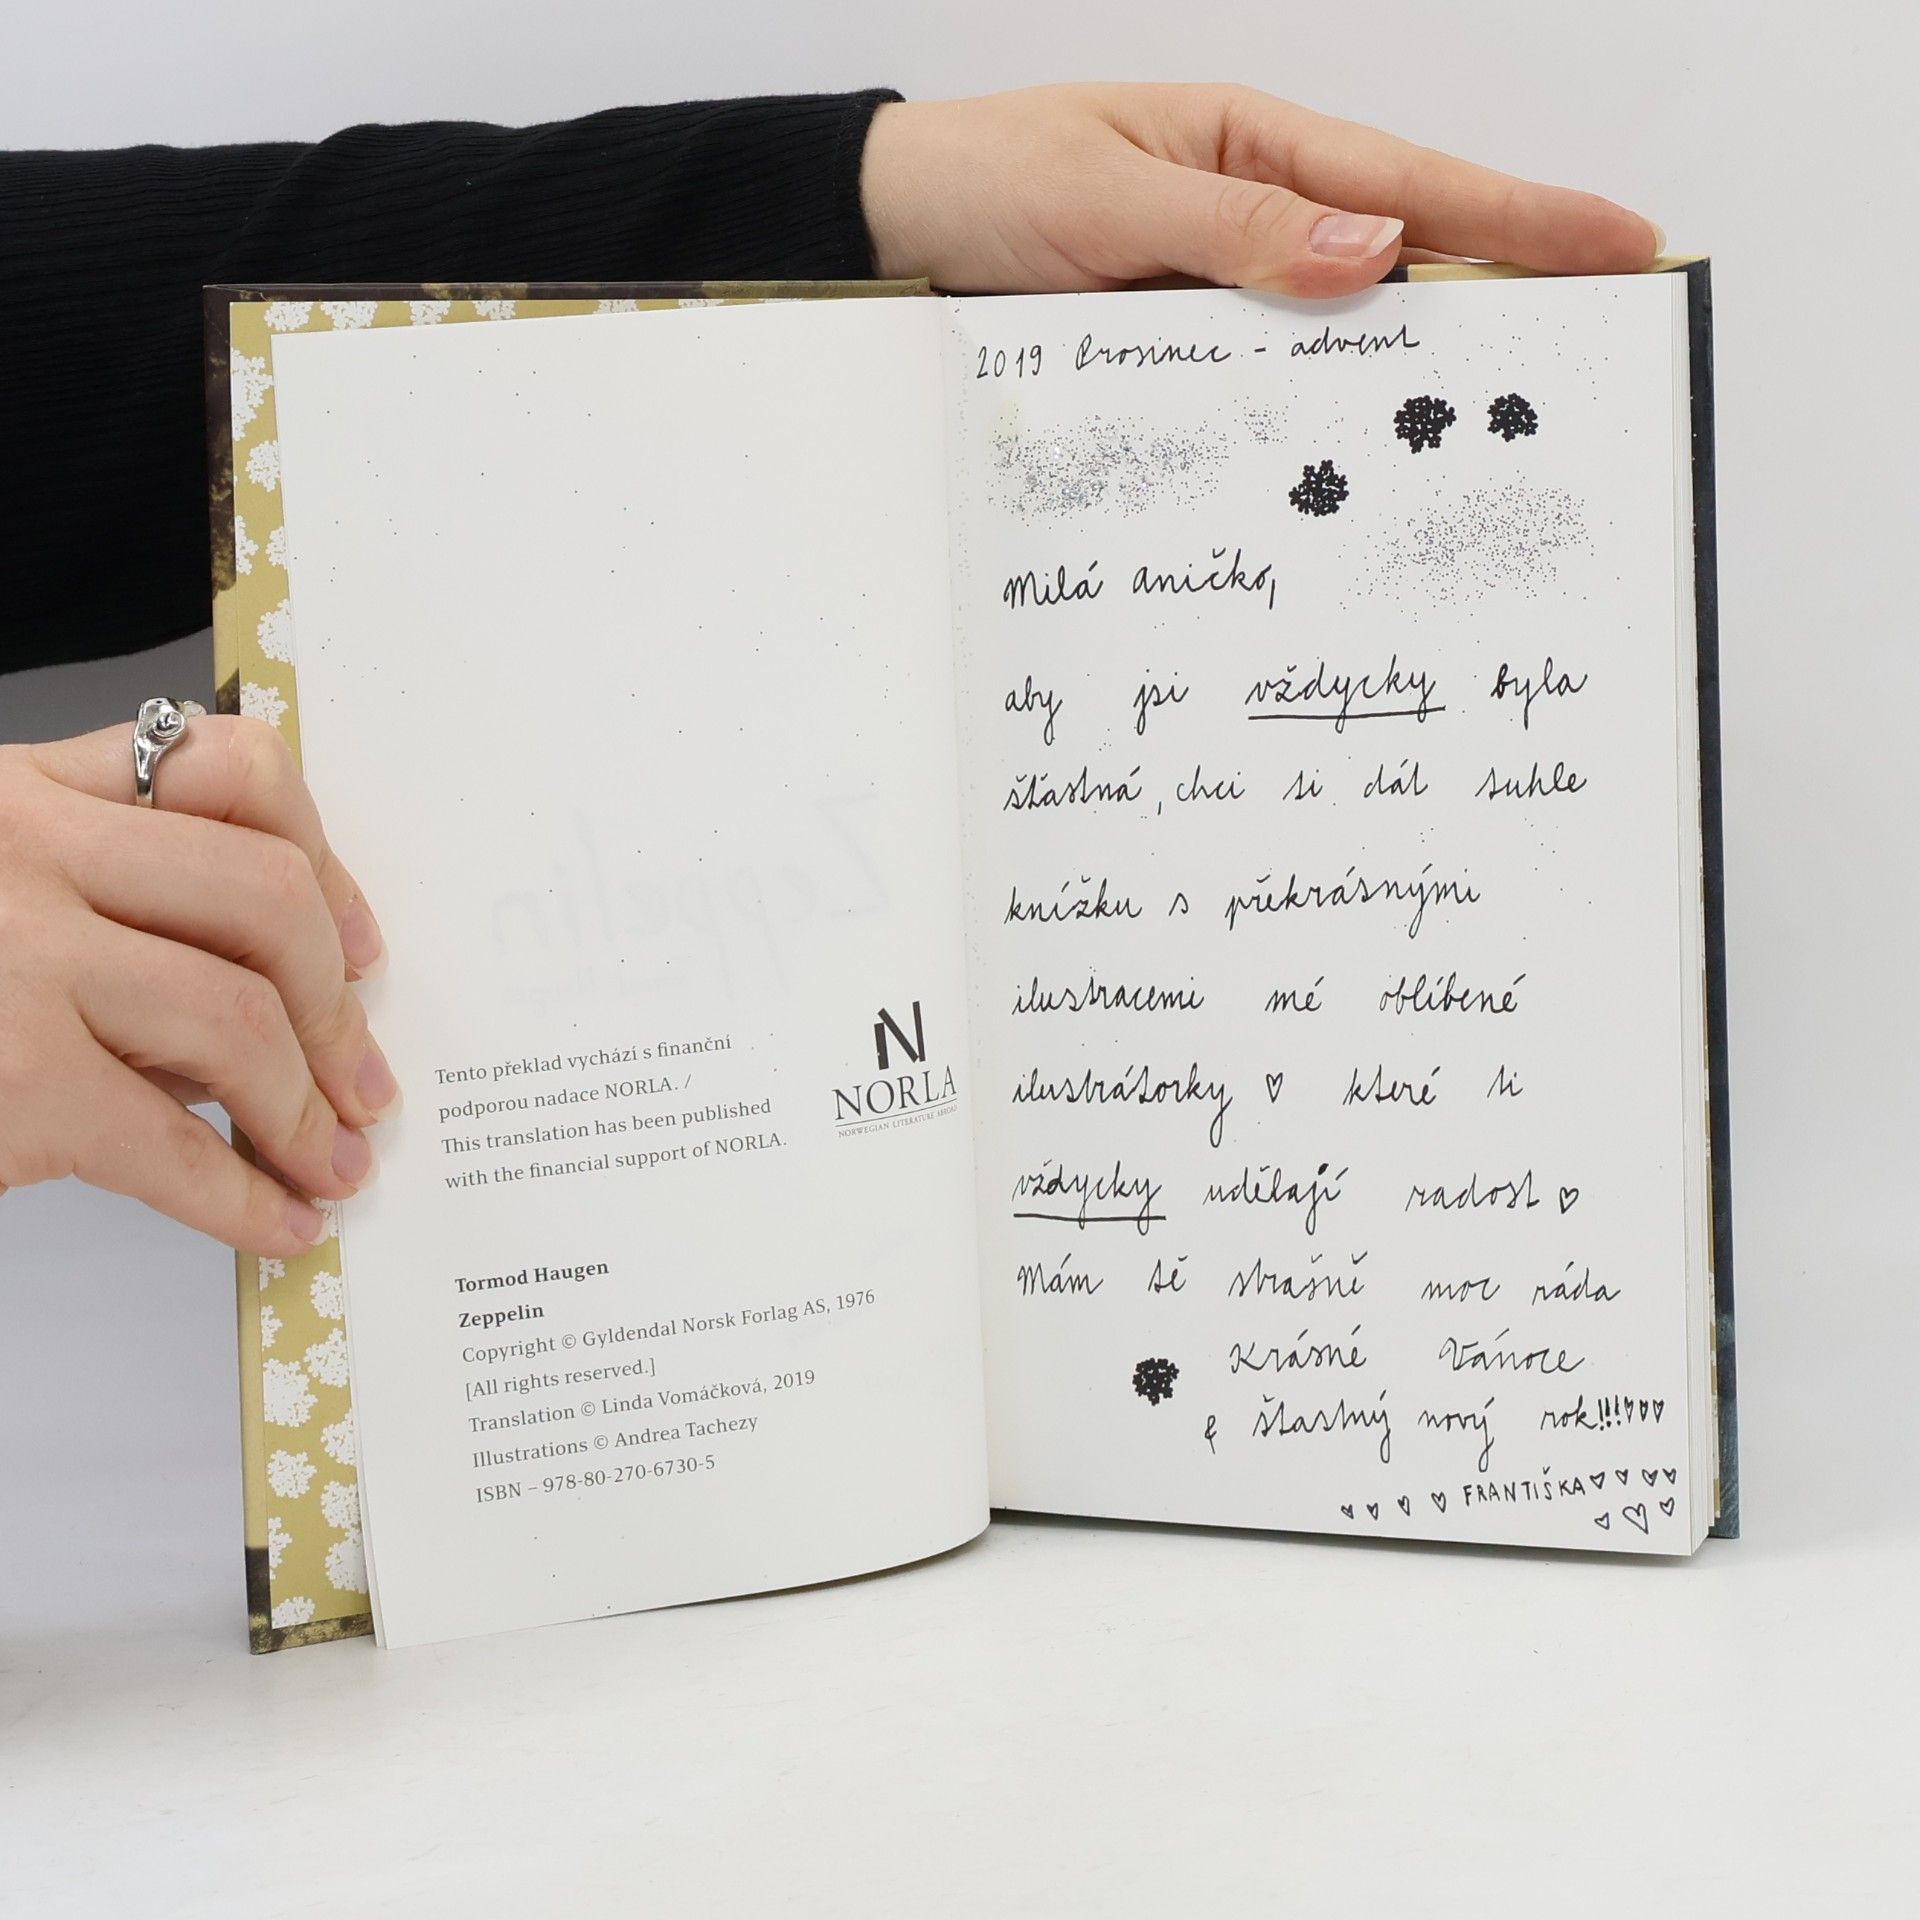 Tento překlad vychází s finanční
podporou nadace NORLA. /
This translation has been published
with the financial support of NORLA.
NORLA
NORWEGIAN LITERATURE ABROAD
Tormod Haugen
Zeppelin
Copyright © Gyldendal Norsk Forlag AS, 1976
[All rights reserved.]
Translation © Linda Vomáčková, 2019
Illustrations © Andrea Tachezy
ISBN – 978-80-270-6730-5
2019 Prosinec - advent
Milá Aničko,
aby jsi vždycky byla
šťastná, chci ti dát tuhle
knížku s překrásnými
ilustracemi mé oblíbené
ilustrátorky ♡ které ti
vždycky udělají radost ♡
Mám tě strašně moc ráda
Krásné Vánoce
& štastný nový rok!!!♡♡♡
♡ ♡ ♡ ♡ FRANTIŠKA ♡ ♡ ♡ ♡
♡ ♡ ♡